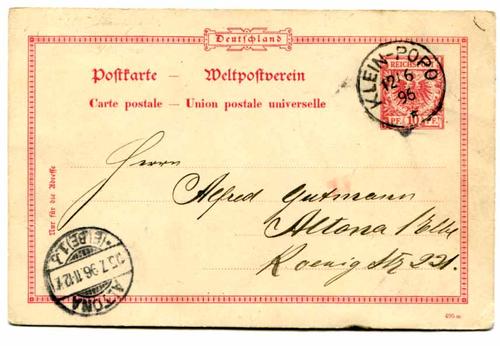 Deutschland
Postkarte — Weltpostverein
Carte postale — Union postale universelle
REICHSPOST
10 PF. 10 PF.
KLEIN-POPO
12/6
96
Nur für die Adresse
Herrn
Alfred Gutmann
Altona /Elbe
Koenig Str 221.
ALTONA
*(ELBE)1.
5.7.96.11-12V.
495 m